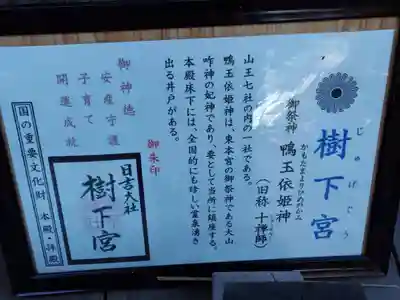 じゅげぐう
樹下宮
御祭神 鴨玉依姫神
かもたまよりひめのかみ
（旧称 十禅師）
山王七社の内の一社である。
鴨玉依姫神は、東本宮の御祭神である大山
咋神の妃神であり、妻として当所に鎮座する。
本殿床下には、全国的にも珍しい霊泉湧き
出る井戸がある。
御神徳
安産守護
子育て
開運成就
御朱印
日吉大社
樹下宮
国の重要文化財 本殿・拝殿